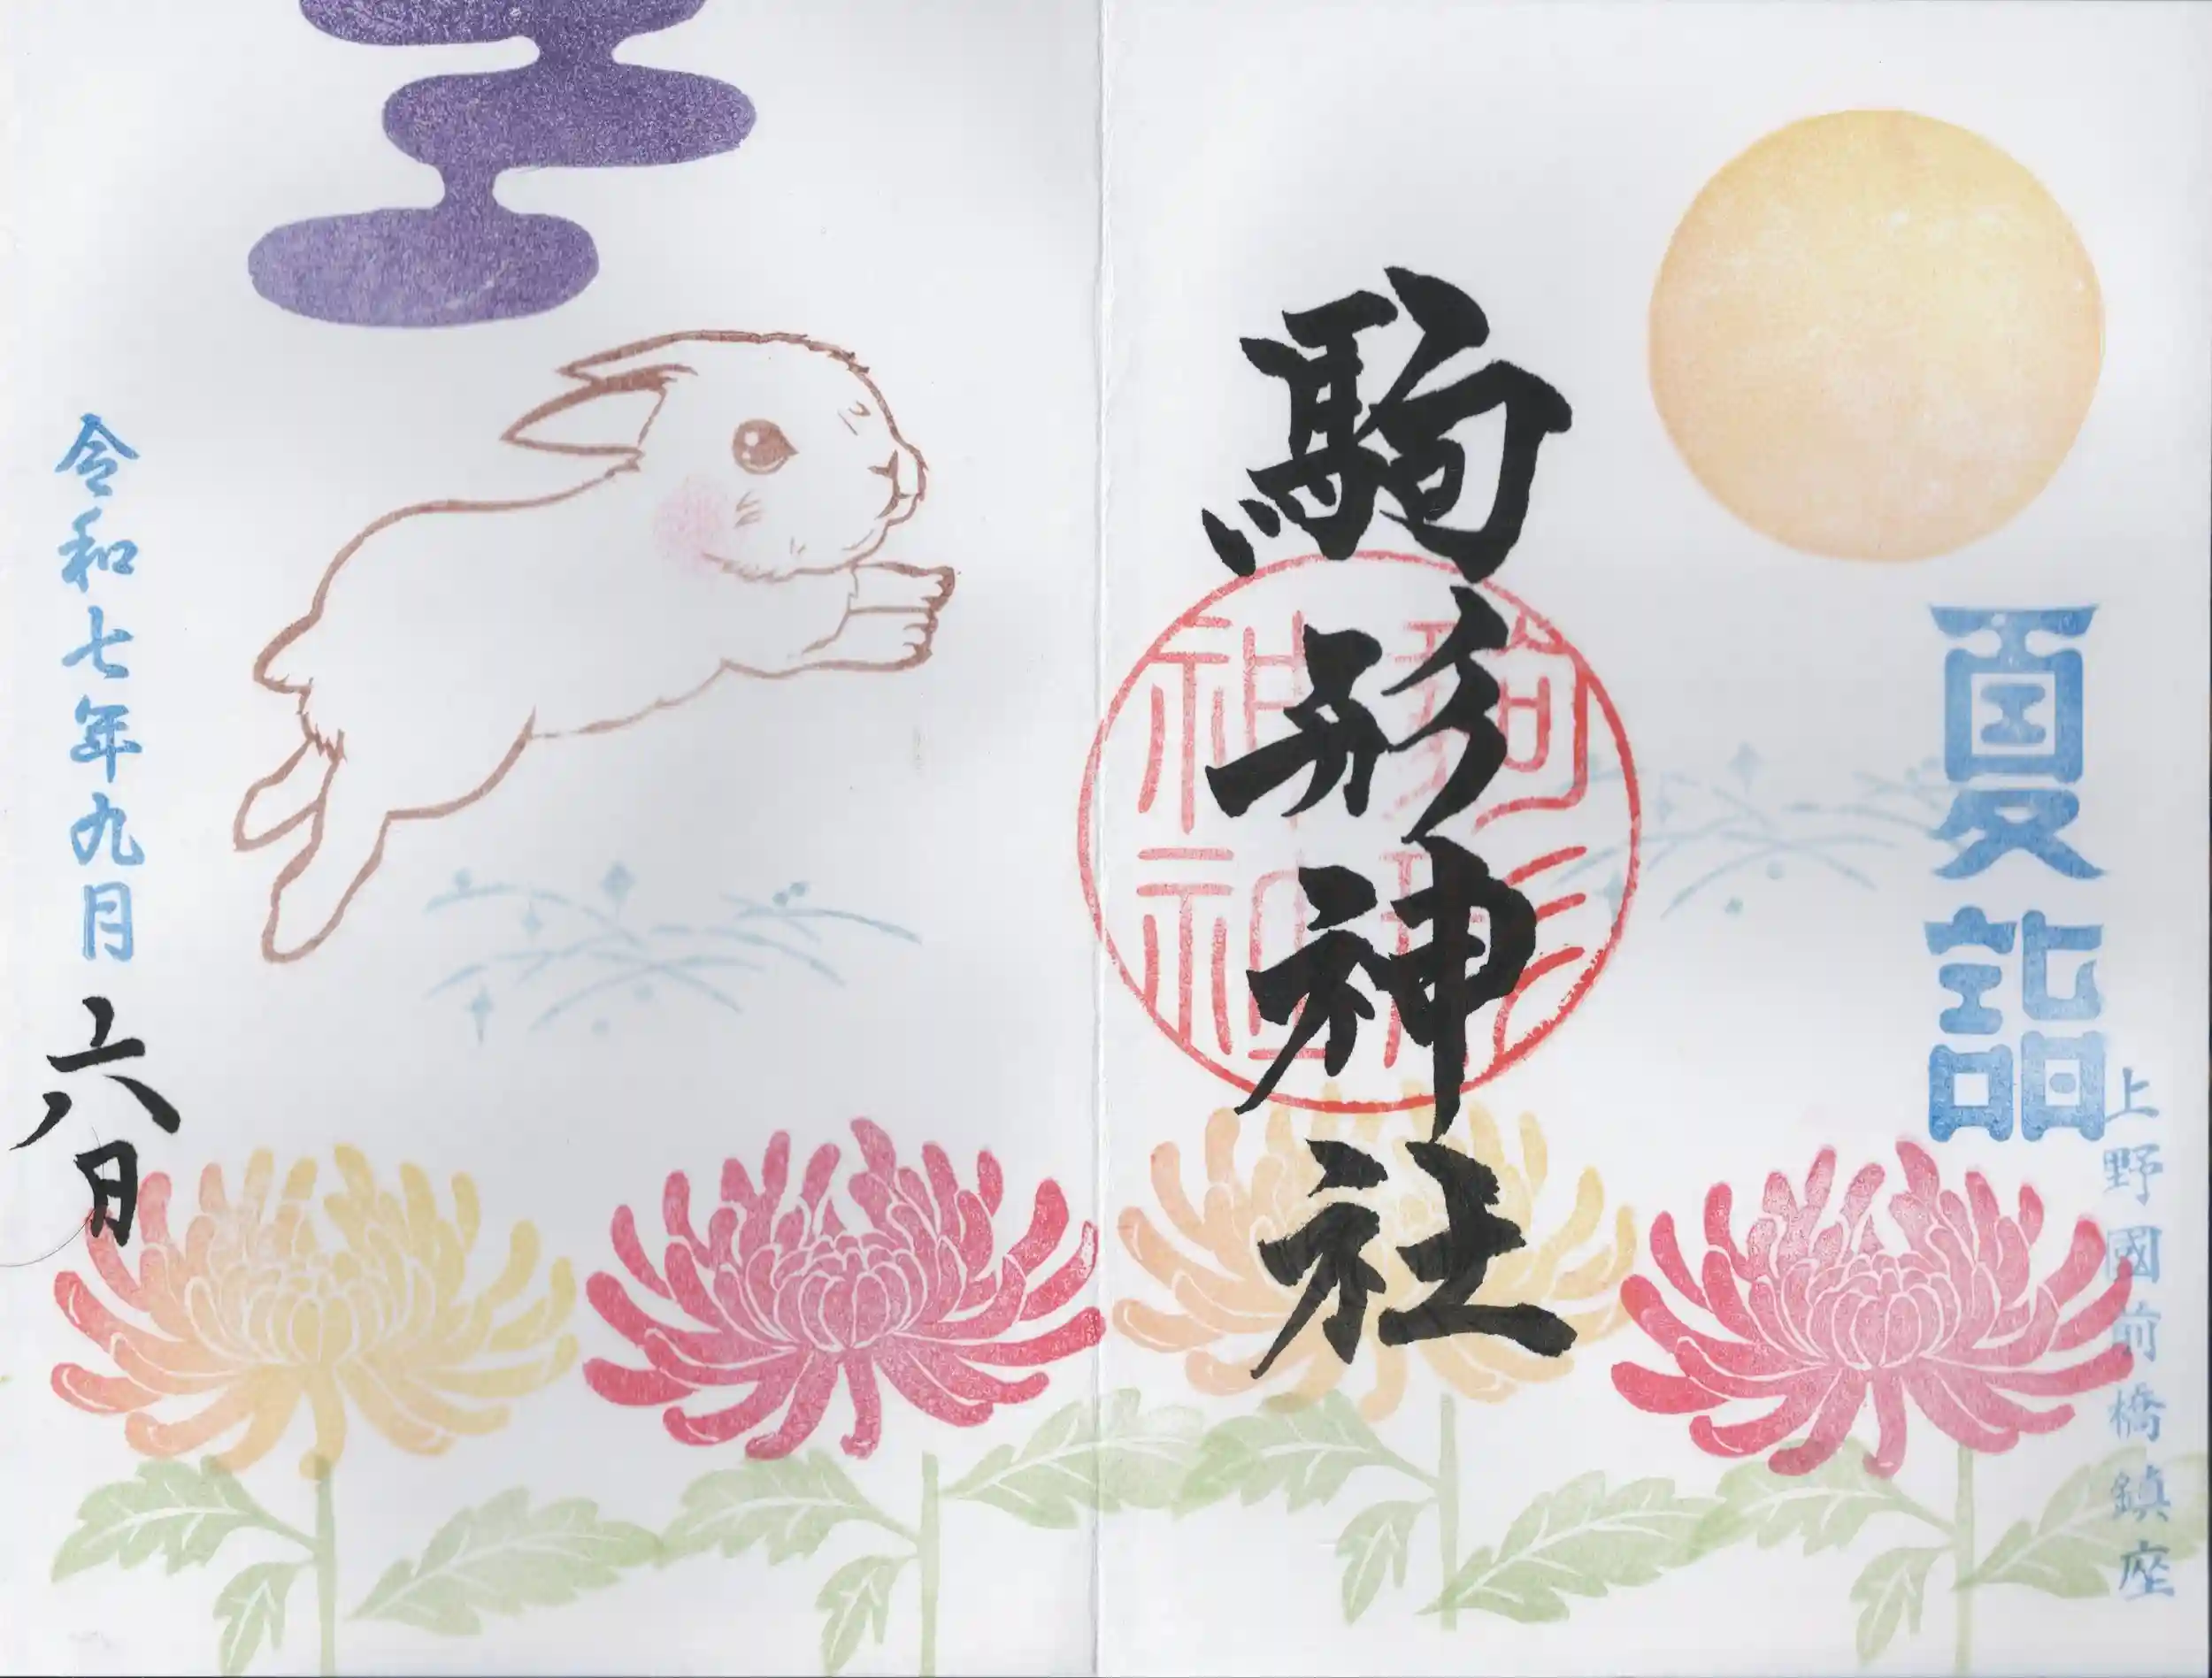 夏詣
上野國前橋鎮座
駒形神社
駒形神社
令和七年九月六日